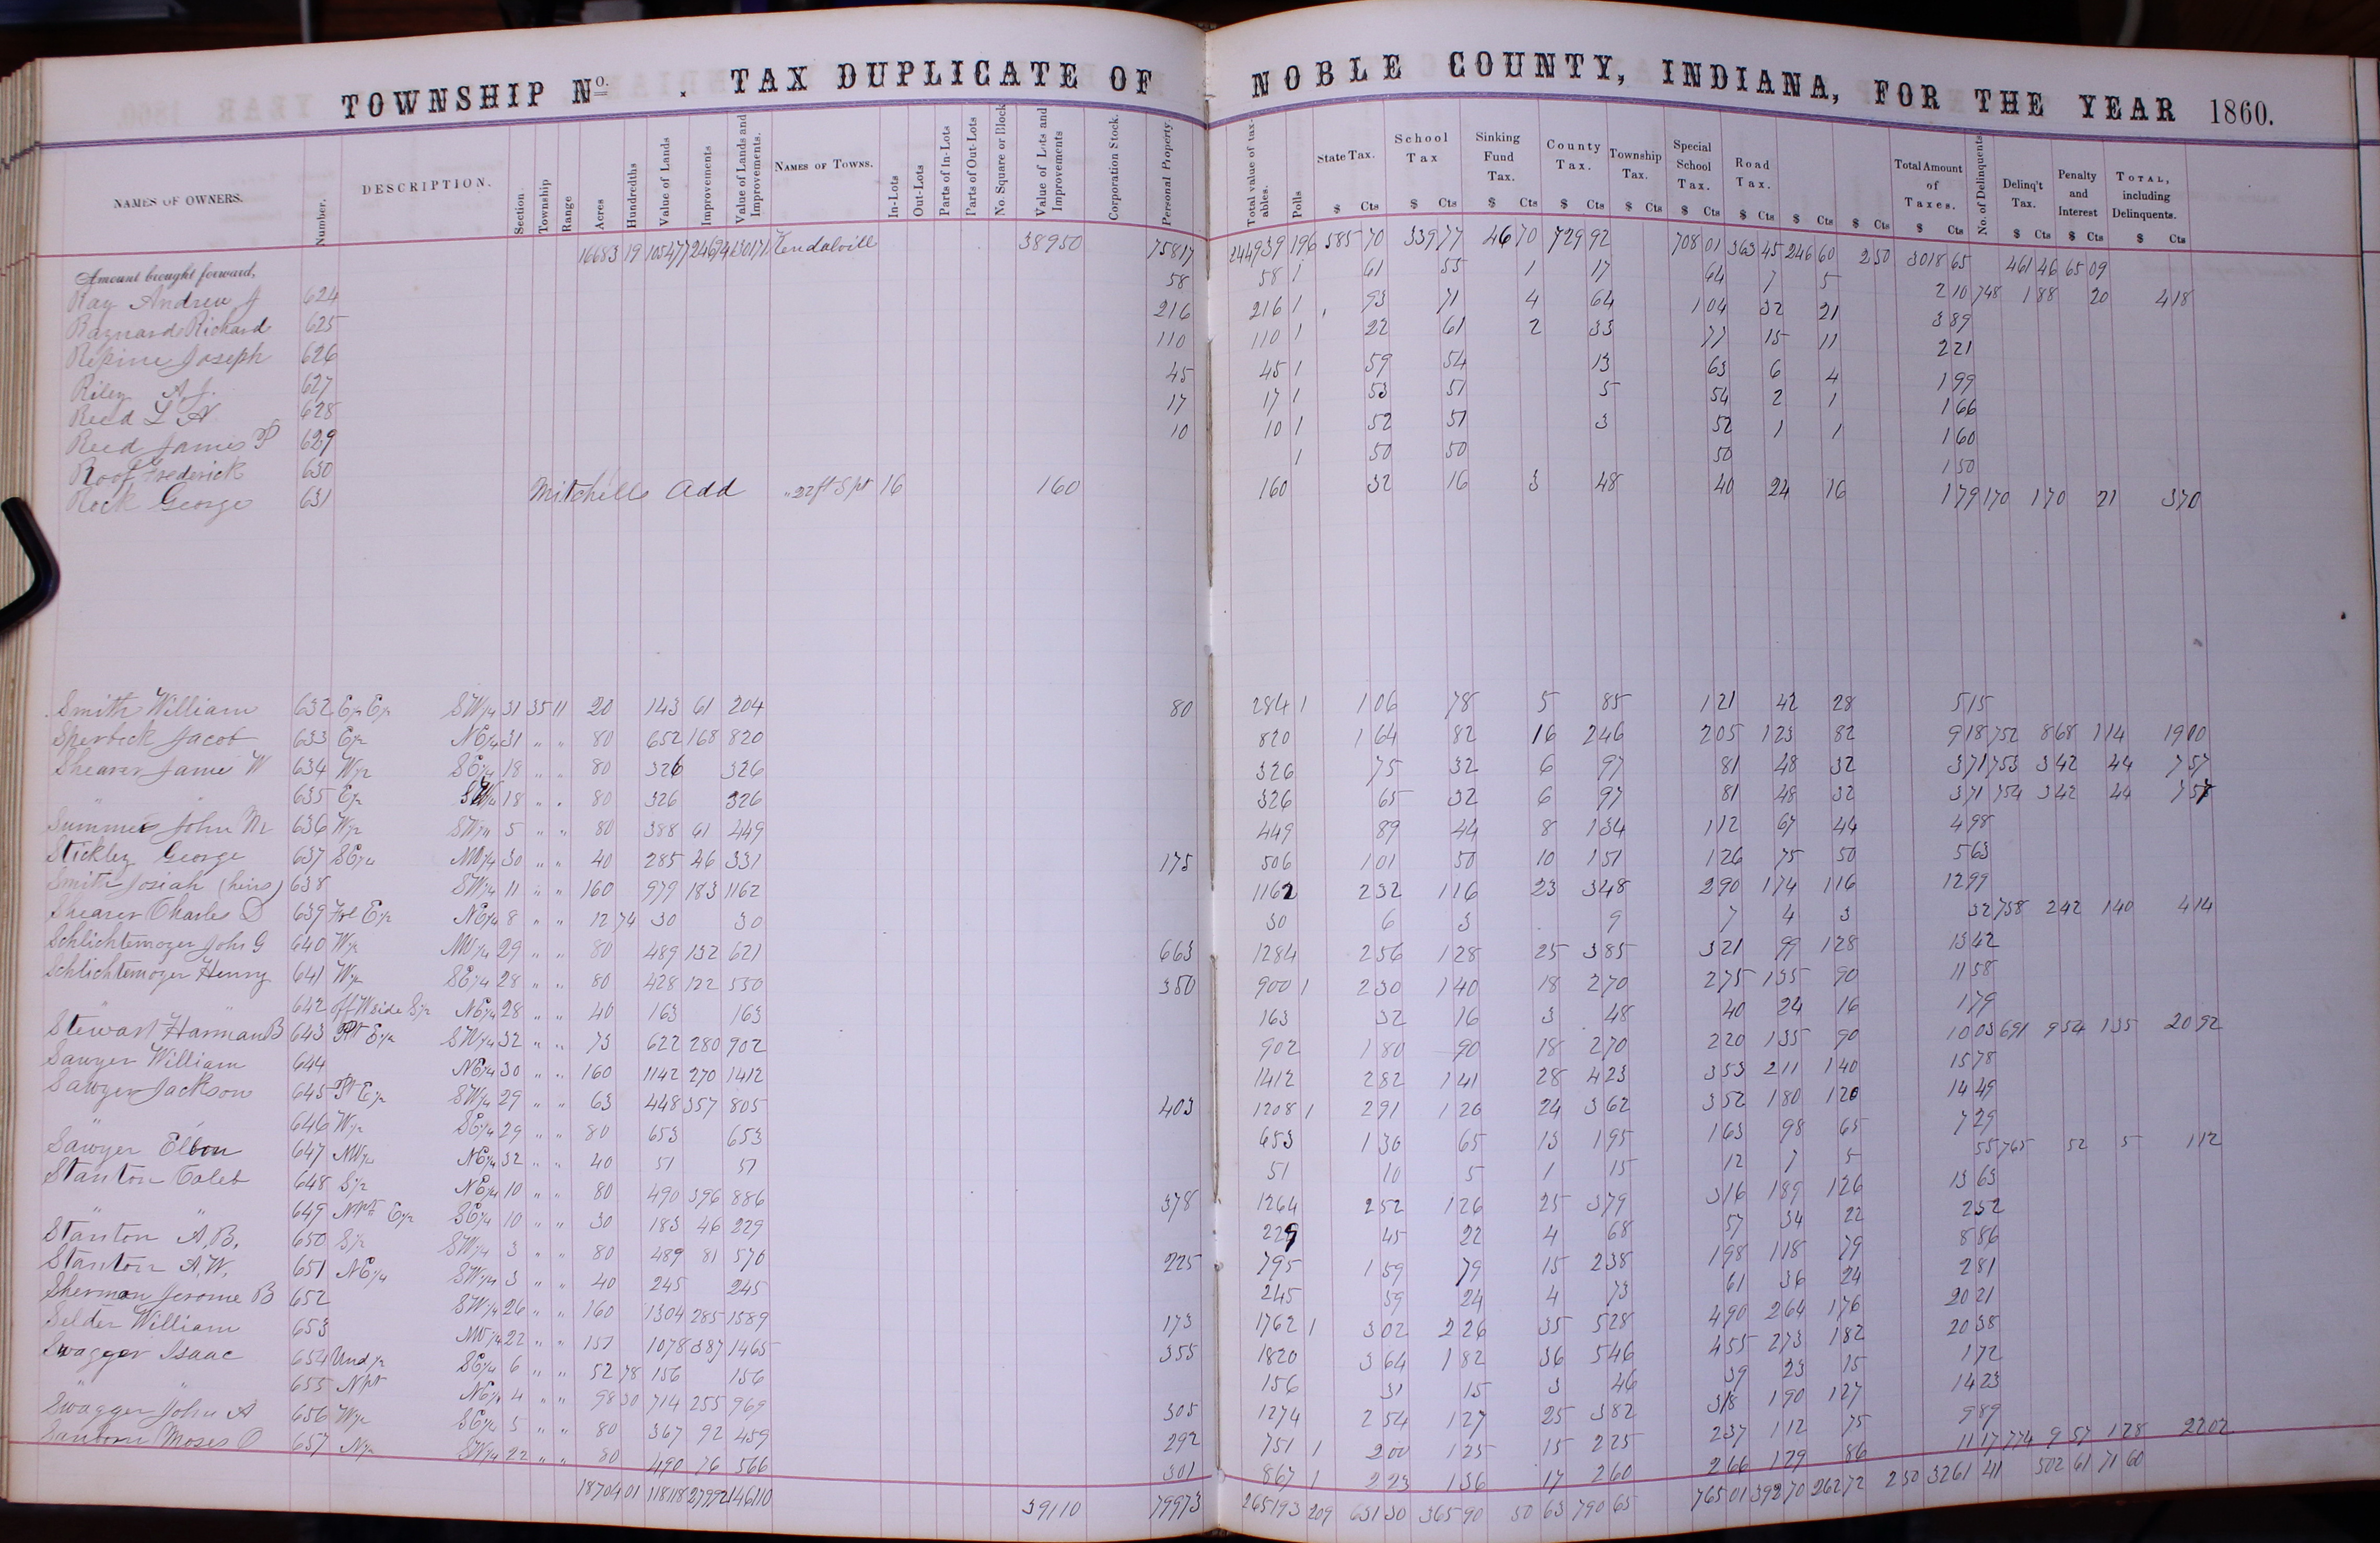 TOWNSHIP No. . TAX DUPLICATE OF NOBLE COUNTY, INDIANA, FOR THE YEAR 1860.
NAMES OF OWNERS. Number. DESCRIPTION. Section. Township Range Acres Hundredths Value of Lands Improvements Value of Lands and Improvements. NAMES OF TOWNS. In-Lots Out-Lots Parts of In-Lots Parts of Out-Lots No. Square or Block Value of Lots and Improvements Corporation Stock. Personal Property. Total value of tax-ables. Polls State Tax. School Tax Sinking Fund Tax. County Tax. Township Tax. Special School Tax. Road Tax. Total Amount of Taxes. No. of Delinquents Delinq't Tax. Penalty and Interest TOTAL, including Delinquents.
$ Cts $ Cts $ Cts $ Cts $ Cts $ Cts $ Cts $ Cts $ Cts $ Cts $ Cts $ Cts $ Cts
Amount brought forward, 16683 19 105477 24694 130171 Kendalvill 38950 75817 244939 196 585 70 339 77 46 70 729 92 708 01 363 45 246 60 2 50 3018 65 461 46 65 09
Ray Andrew J 624 58 58 1 61 55 1 17 64 7 5 2 10 748 1 88 20 4 18
Baynard Richard 625 216 216 1 93 71 4 64 1 04 32 21 3 89
Repine Joseph 626 110 110 1 22 61 2 33 77 15 11 2 21
Riley A.J. 627 45 45 1 59 54 13 63 6 4 1 99
Reed L N 628 17 17 1 53 51 5 54 2 1 1 66
Reed James P 629 10 10 1 52 51 3 52 1 1 1 60
Roof Frederick 630 1 50 50 50 1 50
Rock George 631 Mitchells Add " 22 ft S pt 16 160 160 32 16 3 48 40 24 16 1 79 170 1 70 21 3 70
Smith William 632 E½ E½ SW¼ 31 35 11 20 143 61 204 80 284 1 1 06 78 5 85 1 21 42 28 5 15
Sperbeck Jacob 633 E½ NE¼ 31 " " 80 652 168 820 820 1 64 82 16 2 46 2 05 1 23 82 9 18 752 8 68 1 14 19 00
Shearer James W 634 W½ SE¼ 18 " " 80 326 326 326 75 32 6 97 81 48 32 3 71 753 3 42 44 7 57
" " 635 E½ SW¼ 18 " " 80 326 326 326 65 32 6 97 81 48 32 3 71 754 3 42 44 7 57
Summers John M 636 W½ SW¼ 5 " " 80 388 61 449 449 89 44 8 1 34 1 12 67 44 4 98
Stickley George 637 SE¼ NW¼ 30 " " 40 285 46 331 175 506 1 01 50 10 1 51 1 26 75 50 5 63
Smith Josiah (heirs) 638 SW¼ 11 " " 160 979 183 1162 1162 2 32 1 16 23 3 48 2 90 1 74 1 16 12 99
Shearer Charles D 639 Frl E½ NE¼ 8 " " 12 74 30 30 30 6 3 9 7 4 3 32 758 2 42 1 40 4 14
Schlichtemoyer John G 640 W½ NW¼ 29 " " 80 489 132 621 663 1284 2 56 1 28 25 3 85 3 21 99 1 28 13 42
Schlichtemoyer Henry 641 W½ SE¼ 28 " " 80 428 122 550 350 900 1 2 30 1 40 18 2 70 2 75 1 35 90 11 58
" " 642 off W side S½ NE¼ 28 " " 40 163 163 163 32 16 3 48 40 24 16 1 79
Stewart Harman B 643 Pt E½ SW¼ 32 " " 73 622 280 902 902 1 80 90 18 2 70 2 20 1 35 90 10 03 691 9 54 1 35 20 92
Sawyer William 644 NE¼ 30 " " 160 1142 270 1412 1412 2 82 1 41 28 4 23 3 53 2 11 1 40 15 78
Sawyer Jackson 645 Pt E½ SW¼ 29 " " 63 448 357 805 403 1208 1 2 91 1 20 24 3 62 3 52 1 80 1 20 14 49
" 646 W½ SE¼ 29 " " 80 653 653 653 1 30 65 13 1 95 1 63 98 65 7 29
Sawyer Elbon 647 NW¼ NE¼ 32 " " 40 51 51 51 10 5 1 15 12 7 5 55 765 52 5 1 12
Stanton Caleb 648 S½ NE¼ 10 " " 80 490 396 886 378 1264 2 52 1 26 25 3 79 3 16 1 89 1 26 13 63
" " 649 N pt E½ SE¼ 10 " " 30 183 46 229 229 45 22 4 68 57 34 22 2 52
Stanton A.B. 650 S½ SW¼ 3 " " 80 489 81 570 225 795 1 59 79 15 2 38 1 98 1 18 79 8 86
Stanton A.W. 651 NE¼ SW¼ 3 " " 40 245 245 245 59 24 4 73 61 36 24 2 81
Sherman Jerome B 652 SW¼ 26 " " 160 1304 285 1589 173 1762 1 3 02 2 26 35 5 28 4 90 2 64 1 76 20 21
Selder William 653 NW¼ 22 " " 151 1078 387 1465 355 1820 3 64 1 82 36 5 46 4 55 2 73 1 82 20 38
Swagger Isaac 654 Und ½ SE¼ 6 " " 52 78 156 156 156 31 15 3 46 39 23 15 1 72
" " 655 N pt NE¼ 4 " " 98 30 714 255 969 305 1274 2 54 1 27 25 3 82 3 18 1 90 1 27 14 23
Swagger John A 656 W½ SE¼ 5 " " 80 367 92 459 292 751 1 2 00 1 25 15 2 25 2 37 1 12 75 9 89
Sanborn Moses O 657 N½ SW¼ 22 " " 80 490 76 566 301 867 1 2 23 1 36 17 2 60 2 66 1 29 86 11 17 774 9 57 1 28 22 02
18704 01 118118 27992 146110 39110 79973 265193 209 631 30 365 90 50 63 790 65 765 01 392 70 262 72 2 50 3261 41 502 61 71 60